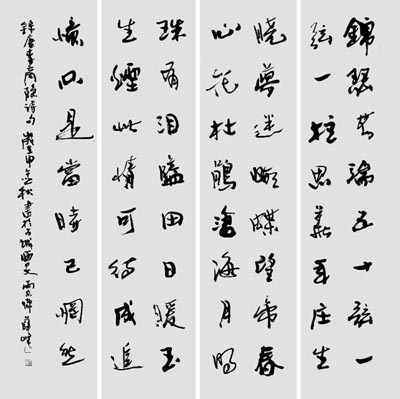 錦瑟無端五十弦一
弦一柱思華年莊生
曉夢迷蝴蝶望帝春
心托杜鵑滄海月明
珠有淚藍田日暖玉
生煙此情可待成追
憶只是當時已惘然
錄唐李商隱詩句 歲在甲午秋書於古城西安